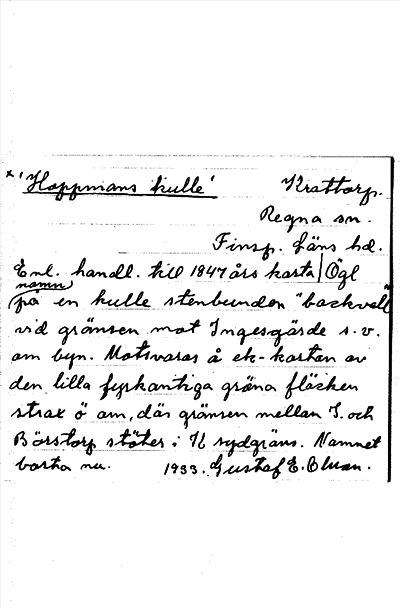 × 'Hoppmans kulle' Krattorp.
Regna sn.
Finsp. läns hd.
Enl. handl. till 1847 års karta | Ögl
namn
på en kulle stenbunden "backvall"
vid gränsen mot Ingesgärde s.v.
om byn. Motsvaras å ek-kartan av
den lilla fyrkantiga gröna fläcken
strax ö om, där gränsen mellan I. och
Börstorp stöter i K sydgräns. Namnet
borta nu. 1933. Gustaf E. Olsson.